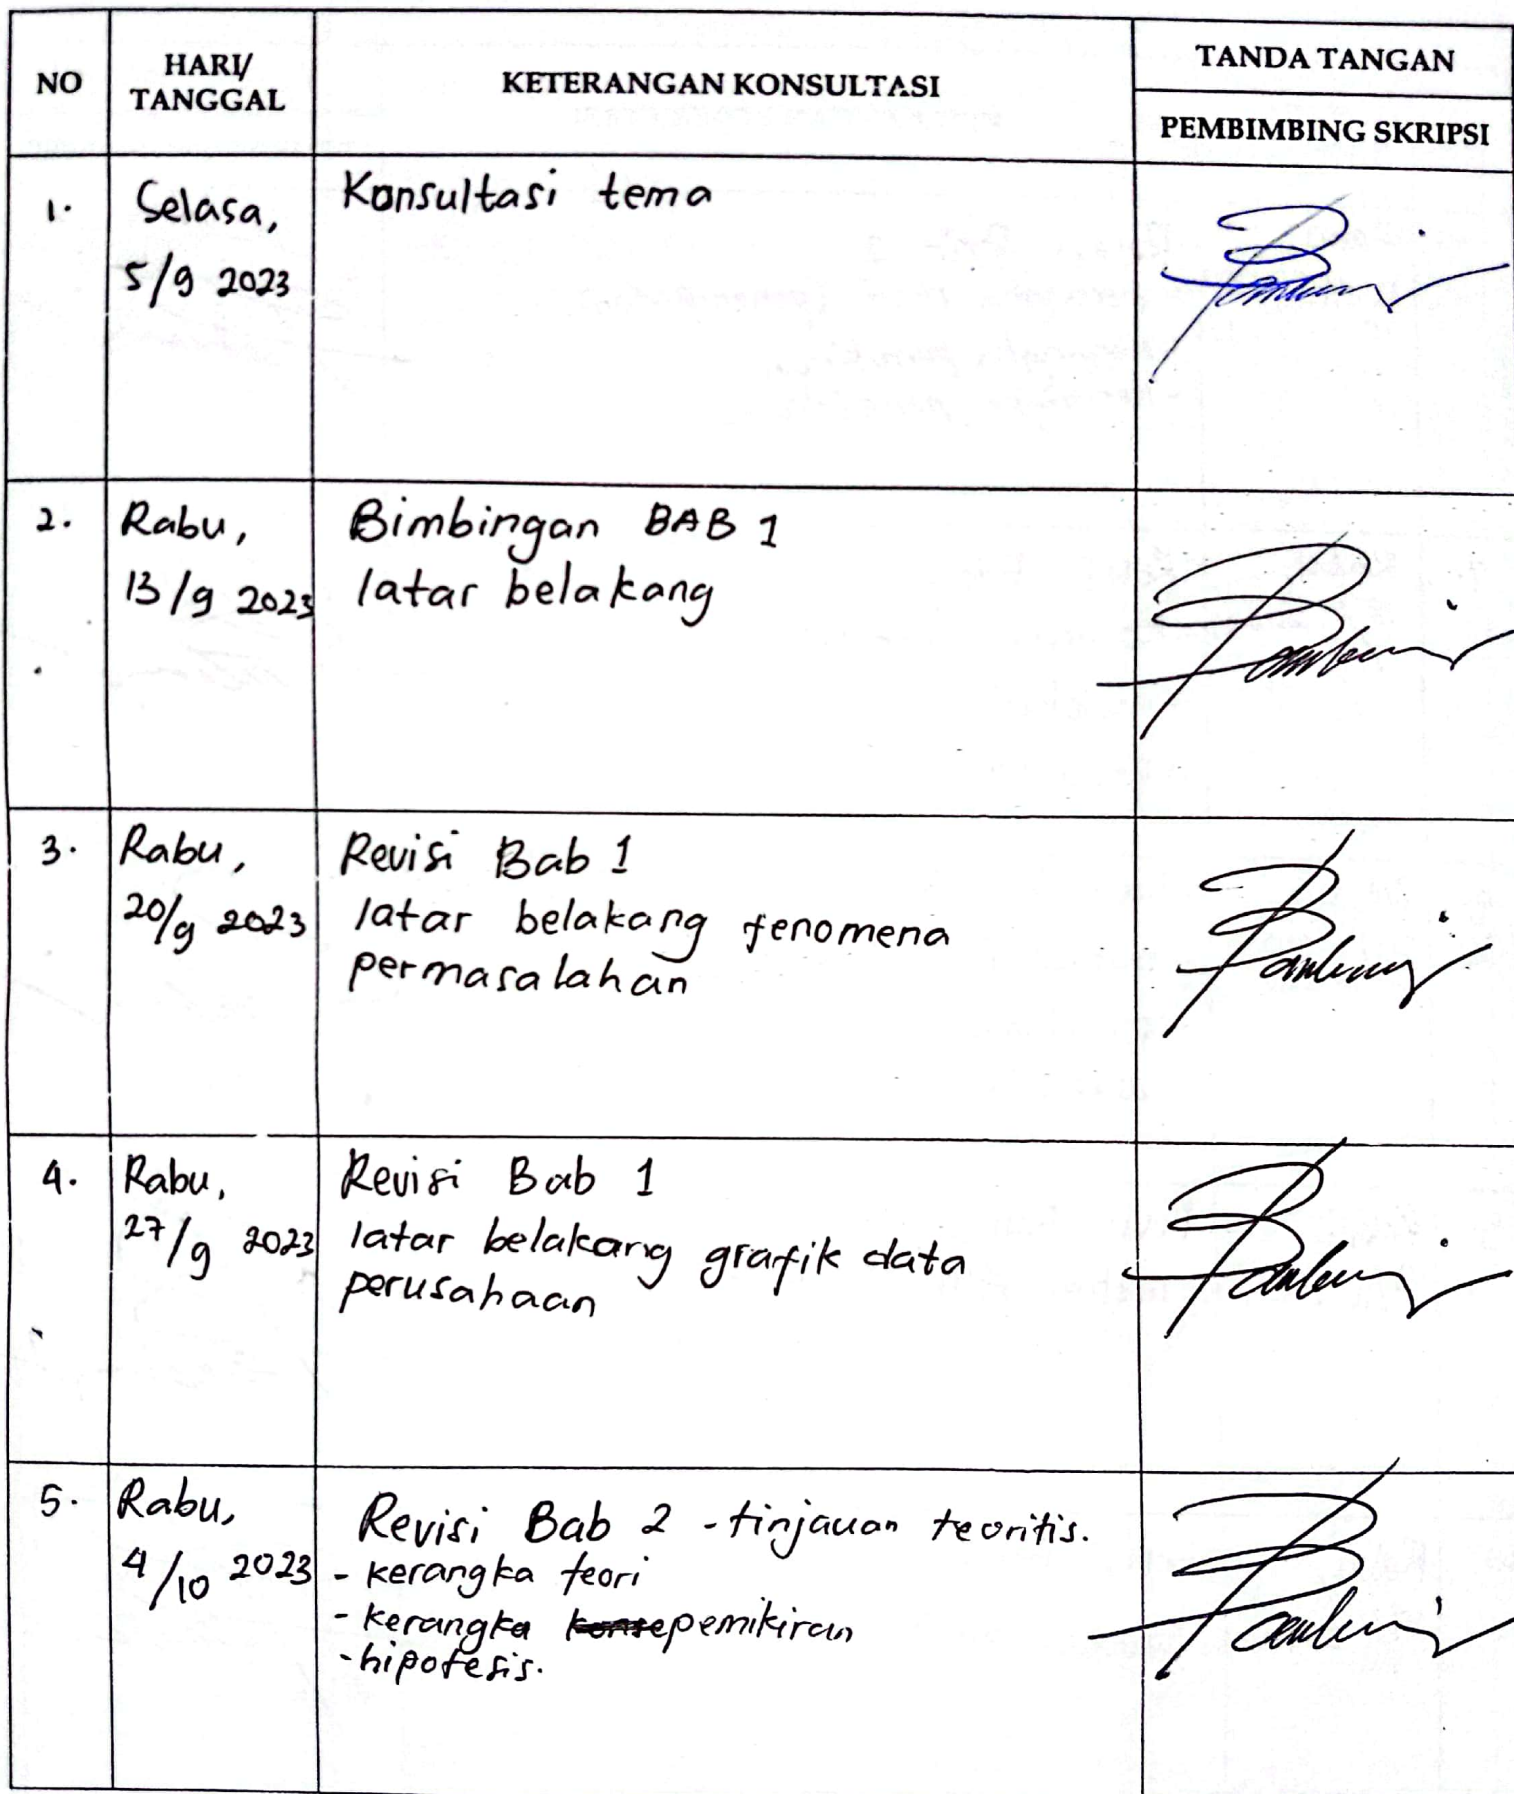 NO
HARI/
TANGGAL
KETERANGAN KONSULTASI
TANDA TANGAN
PEMBIMBING SKRIPSI
1.
Selasa,
5/9 2023
Konsultasi tema
2.
Rabu,
13/9 2023
Bimbingan BAB 1
latar belakang
3.
Rabu,
20/9 2023
Revisi Bab 1
latar belakang fenomena
permasalahan
4.
Rabu,
27/9 2023
Revisi Bab 1
latar belakang grafik data
perusahaan
5.
Rabu,
4/10 2023
Revisi Bab 2 - tinjauan teoritis.
- kerangka teori
- kerangka pemikiran
- hipotesis.